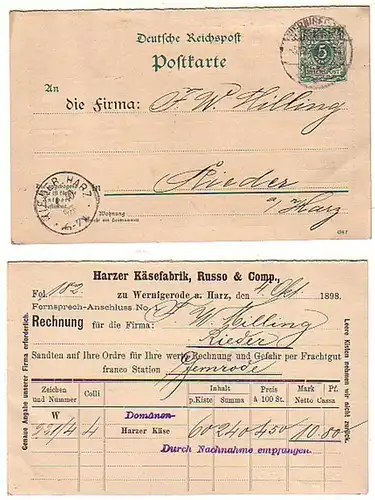 Deutsche Reichspost
Postkarte
An
die Firma: F. W. Hilling
Rieder
a/Harz
Wohnung
RIEDER HARZ
5
Harzer Käsefabrik, Russo & Comp.,
Fol. 102 zu Wernigerode a. Harz, den 4 Okt. 1898.
Fernsprech-Anschluss No.
Rechnung für die Firma: F. W. Hilling
Rieder
Sandten auf Ihre Ordre für Ihre werte Rechnung und Gefahr per Frachtgut
franco Station
Genaue Angabe unserer Firma erforderlich.
Leere Kisten nehmen wir nicht zurück.
Zeichen und Nummer Colli Inhalt p. Kiste Summa Preis à 100 St. Mark Pf. Netto Cassa
W Domänen-
4 Harzer Käse 60 240 450 10.80
Durch Nachnahme empfangen.